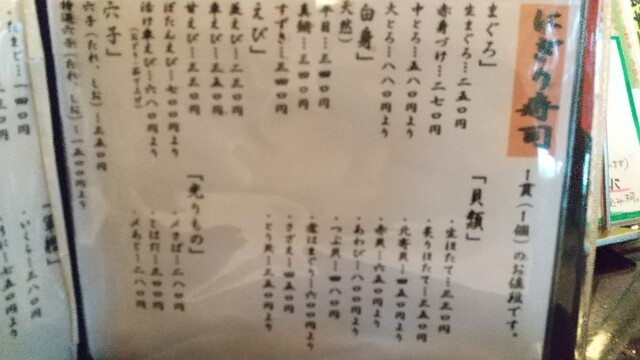 にぎり寿司
1貫(1個)のお値段です。
まぐろ」
生まぐろ…二五〇円
赤身づけ…二七〇円
中とろ…五八〇円より
大とろ…八八〇円より
白身」
天然)
平目…三四〇円
真鯛…三四〇円
すずき…三四〇円
えび」
蒸えび…三三〇円
車えび…五五〇円
甘えび…三三〇円
ぼたんえび…七〇〇円より
活け車えび…六八〇円より
穴子」
穴子(たれ、しお)…五五〇円
「貝類」
・生ほたて…三三〇円
・炙りほたて…三五〇円
・北寄貝…四五〇円より
・赤貝…六五〇円より
・あわび…八〇〇円より
・つぶ貝…四八〇円
・煮はまぐり…六〇〇円より
・さざえ…四五〇円
・とり貝…三五〇円より
「光りもの」
・〆さば…二八〇円
・こはだ…三五〇円
・〆あじ…二八〇円
「軍艦」
・いくら…三八〇円
・うに…七五〇円より
たまご…一四〇円